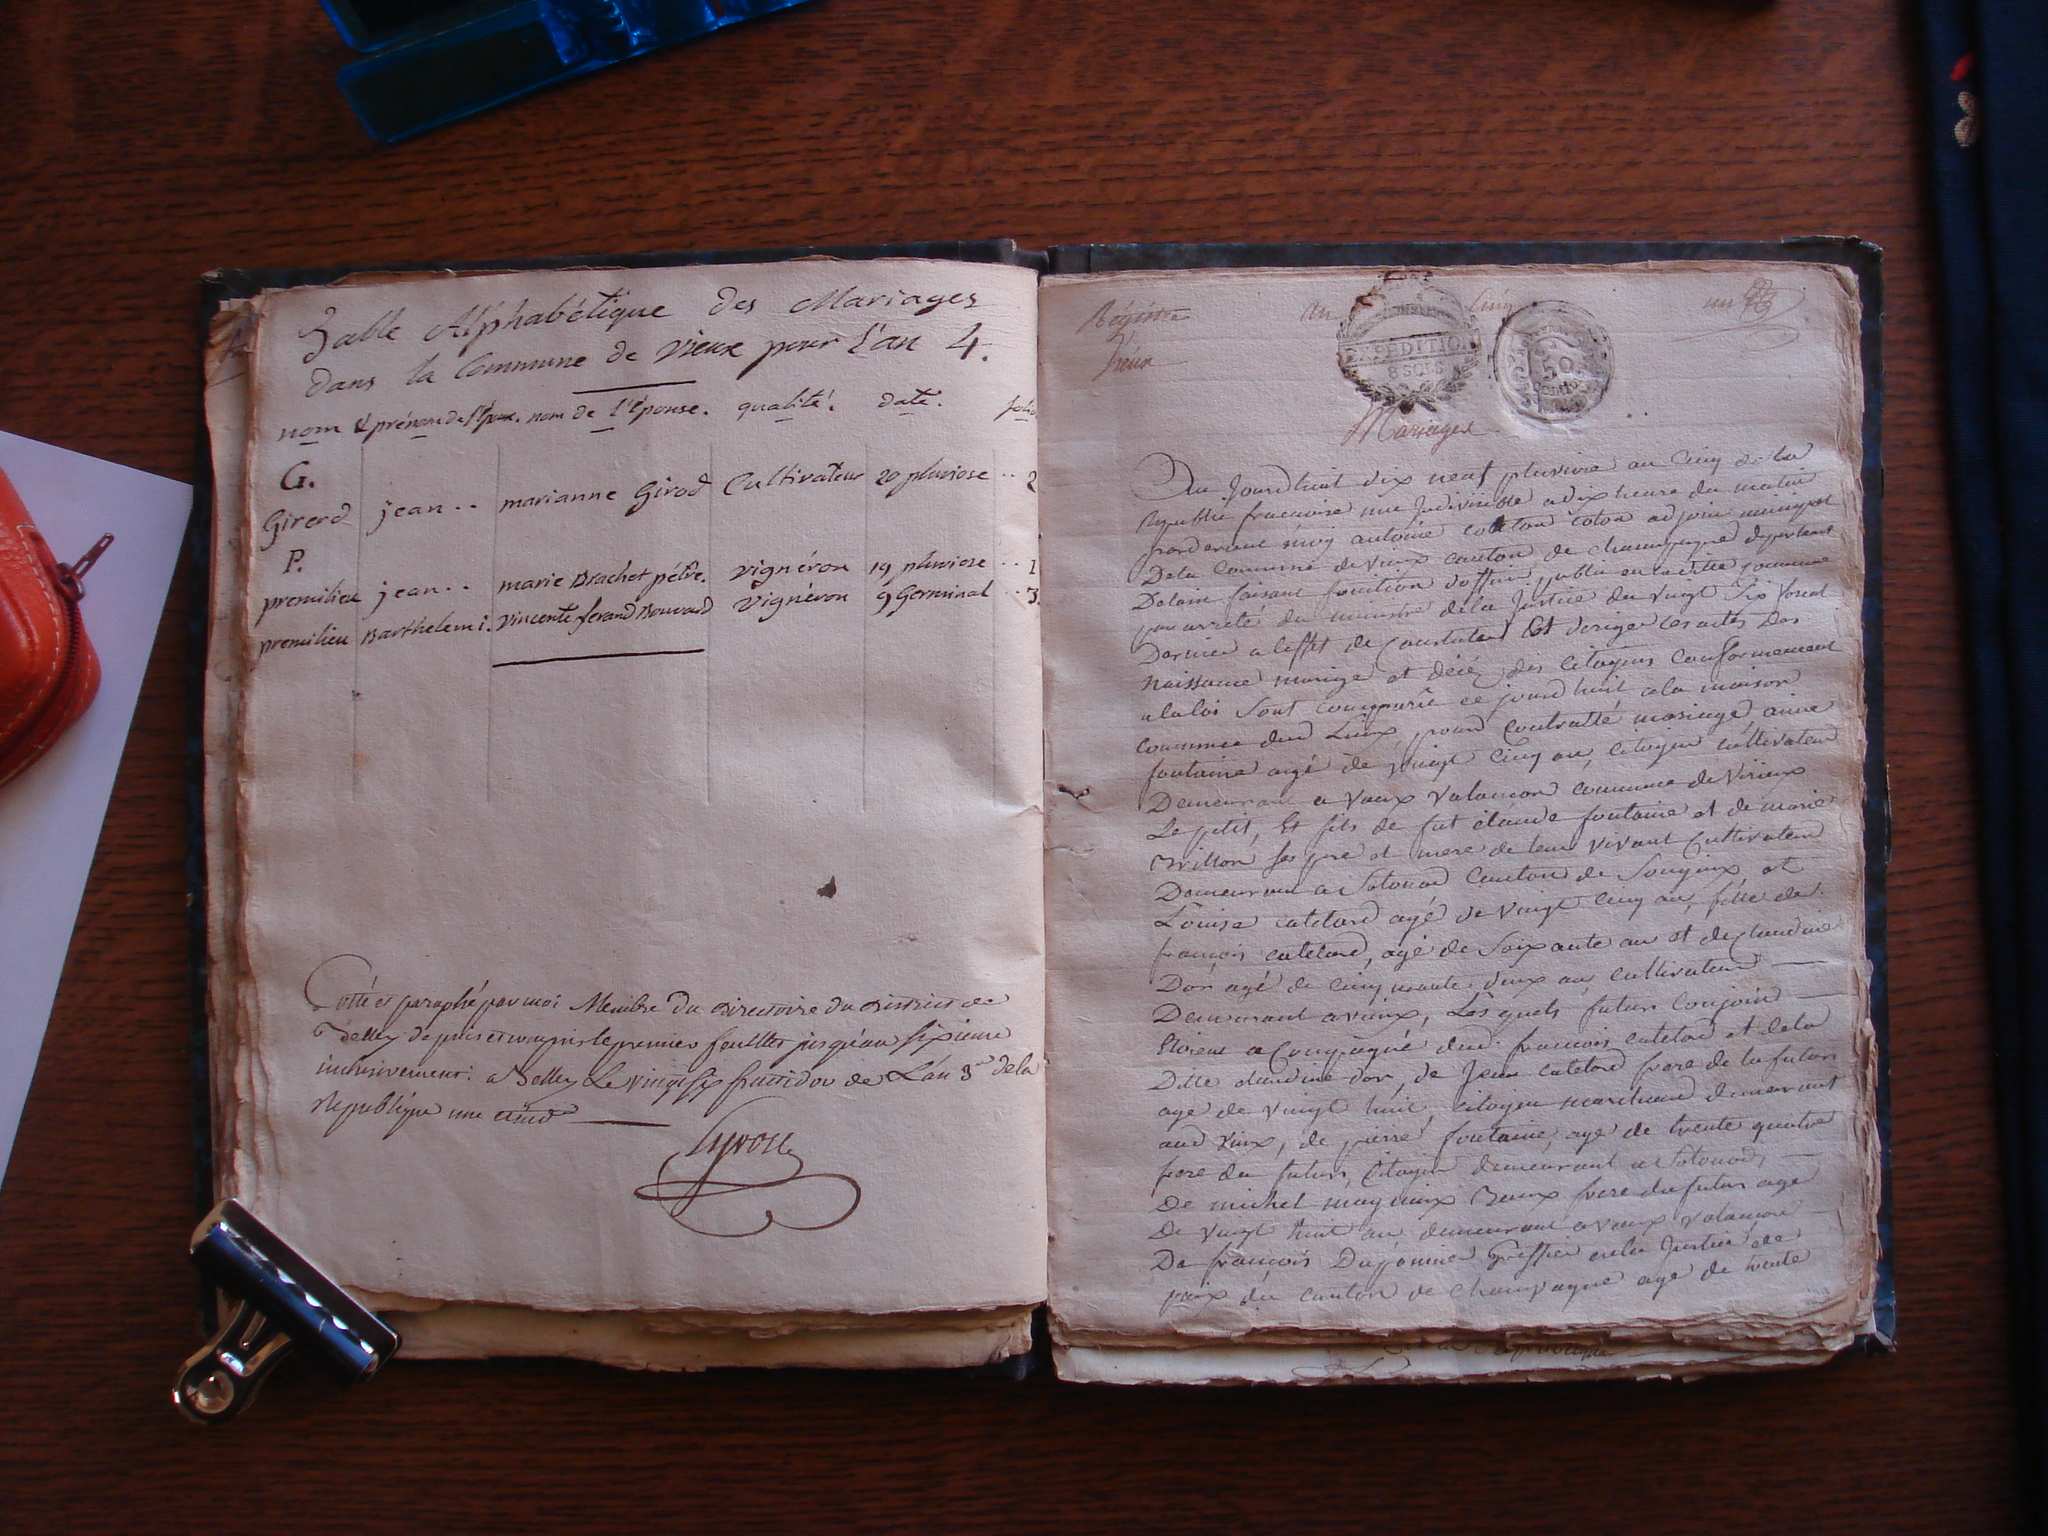 Table Alphabétique des Mariages
dans la Commune de Vieux pour l'an 4.
nom & prénom de l'Époux. nom de l'Épouse. qualité. date. folio
G.
Girerd jean.. marianne Girod Cultivateur 20 pluviose .. 2
P.
premilieu jean.. marie Brachet pétre. Vignéron 19 pluviose .. 1
premilieu Barthelemi. Vincente ferand Bouvard Vignéron 9 Germinal .. 3.
Cotté et paraphé par moi Membre du Directoire du District de
Belley depuis et compris le premier feuillet jusqu'au sixieme
inclusivement. a Belley Le vingt six fructidor de L'an 3e de la
Republique une et ind
Registre an Cinq un
Vieux
EXPEDITION
8 SOLS
50
Mariages
Au Jourd huit dix neuf pluviose an Cinq de la
Republi francaise une Indivisible a dix heure du matin
pardevant moy antoine cotton adjoin municipal
De la commune de vieux canton de champagne departement
Delain faisant fonction doffisie public en la ditte commune
par arreté du ministre de la Justice du vingt six
Dernier a leffet de Constater Et rediger les actes Des
naissance mariage et décé des Citoyens Conformement
a la loi Sont comparu ce jourd huit a la maison
commune dud Lieux, pour Contratté mariage
fontaine agé de vingt cinq an, citoyen cultivateur
Demeurant a vaux valamon commune de virieux
Le petit, Et fils de fut claude fontaine et de marie
Brillon ses pere et mere de leur vivant Cultivateur
Demeurant a Sotonod Canton de Songieux, et
Louise catelard agé de vingt cinq an, fille de
francois catelard, agé de Soixante an et de claudine
Dor agé de cinquante deux an, cultivateur
Demeurant a vieux, Lesquels futurs Conjoin
Etoient a Compagné dud. francois catelard et de la
Ditte claudine dor, de Jean catelard frere de la future
age de vingt huit, citoyen marchand demeurant
aud vieux, de pierre fontaine, age de trente quatre
frere du futur, Citoyen demeurant a Sotonod,
De michel Beaux frere du futur age
De vingt huit an demeurant a vaux valamon
De francois Greffier de la Justice de
paix du canton de Champagne age de trente